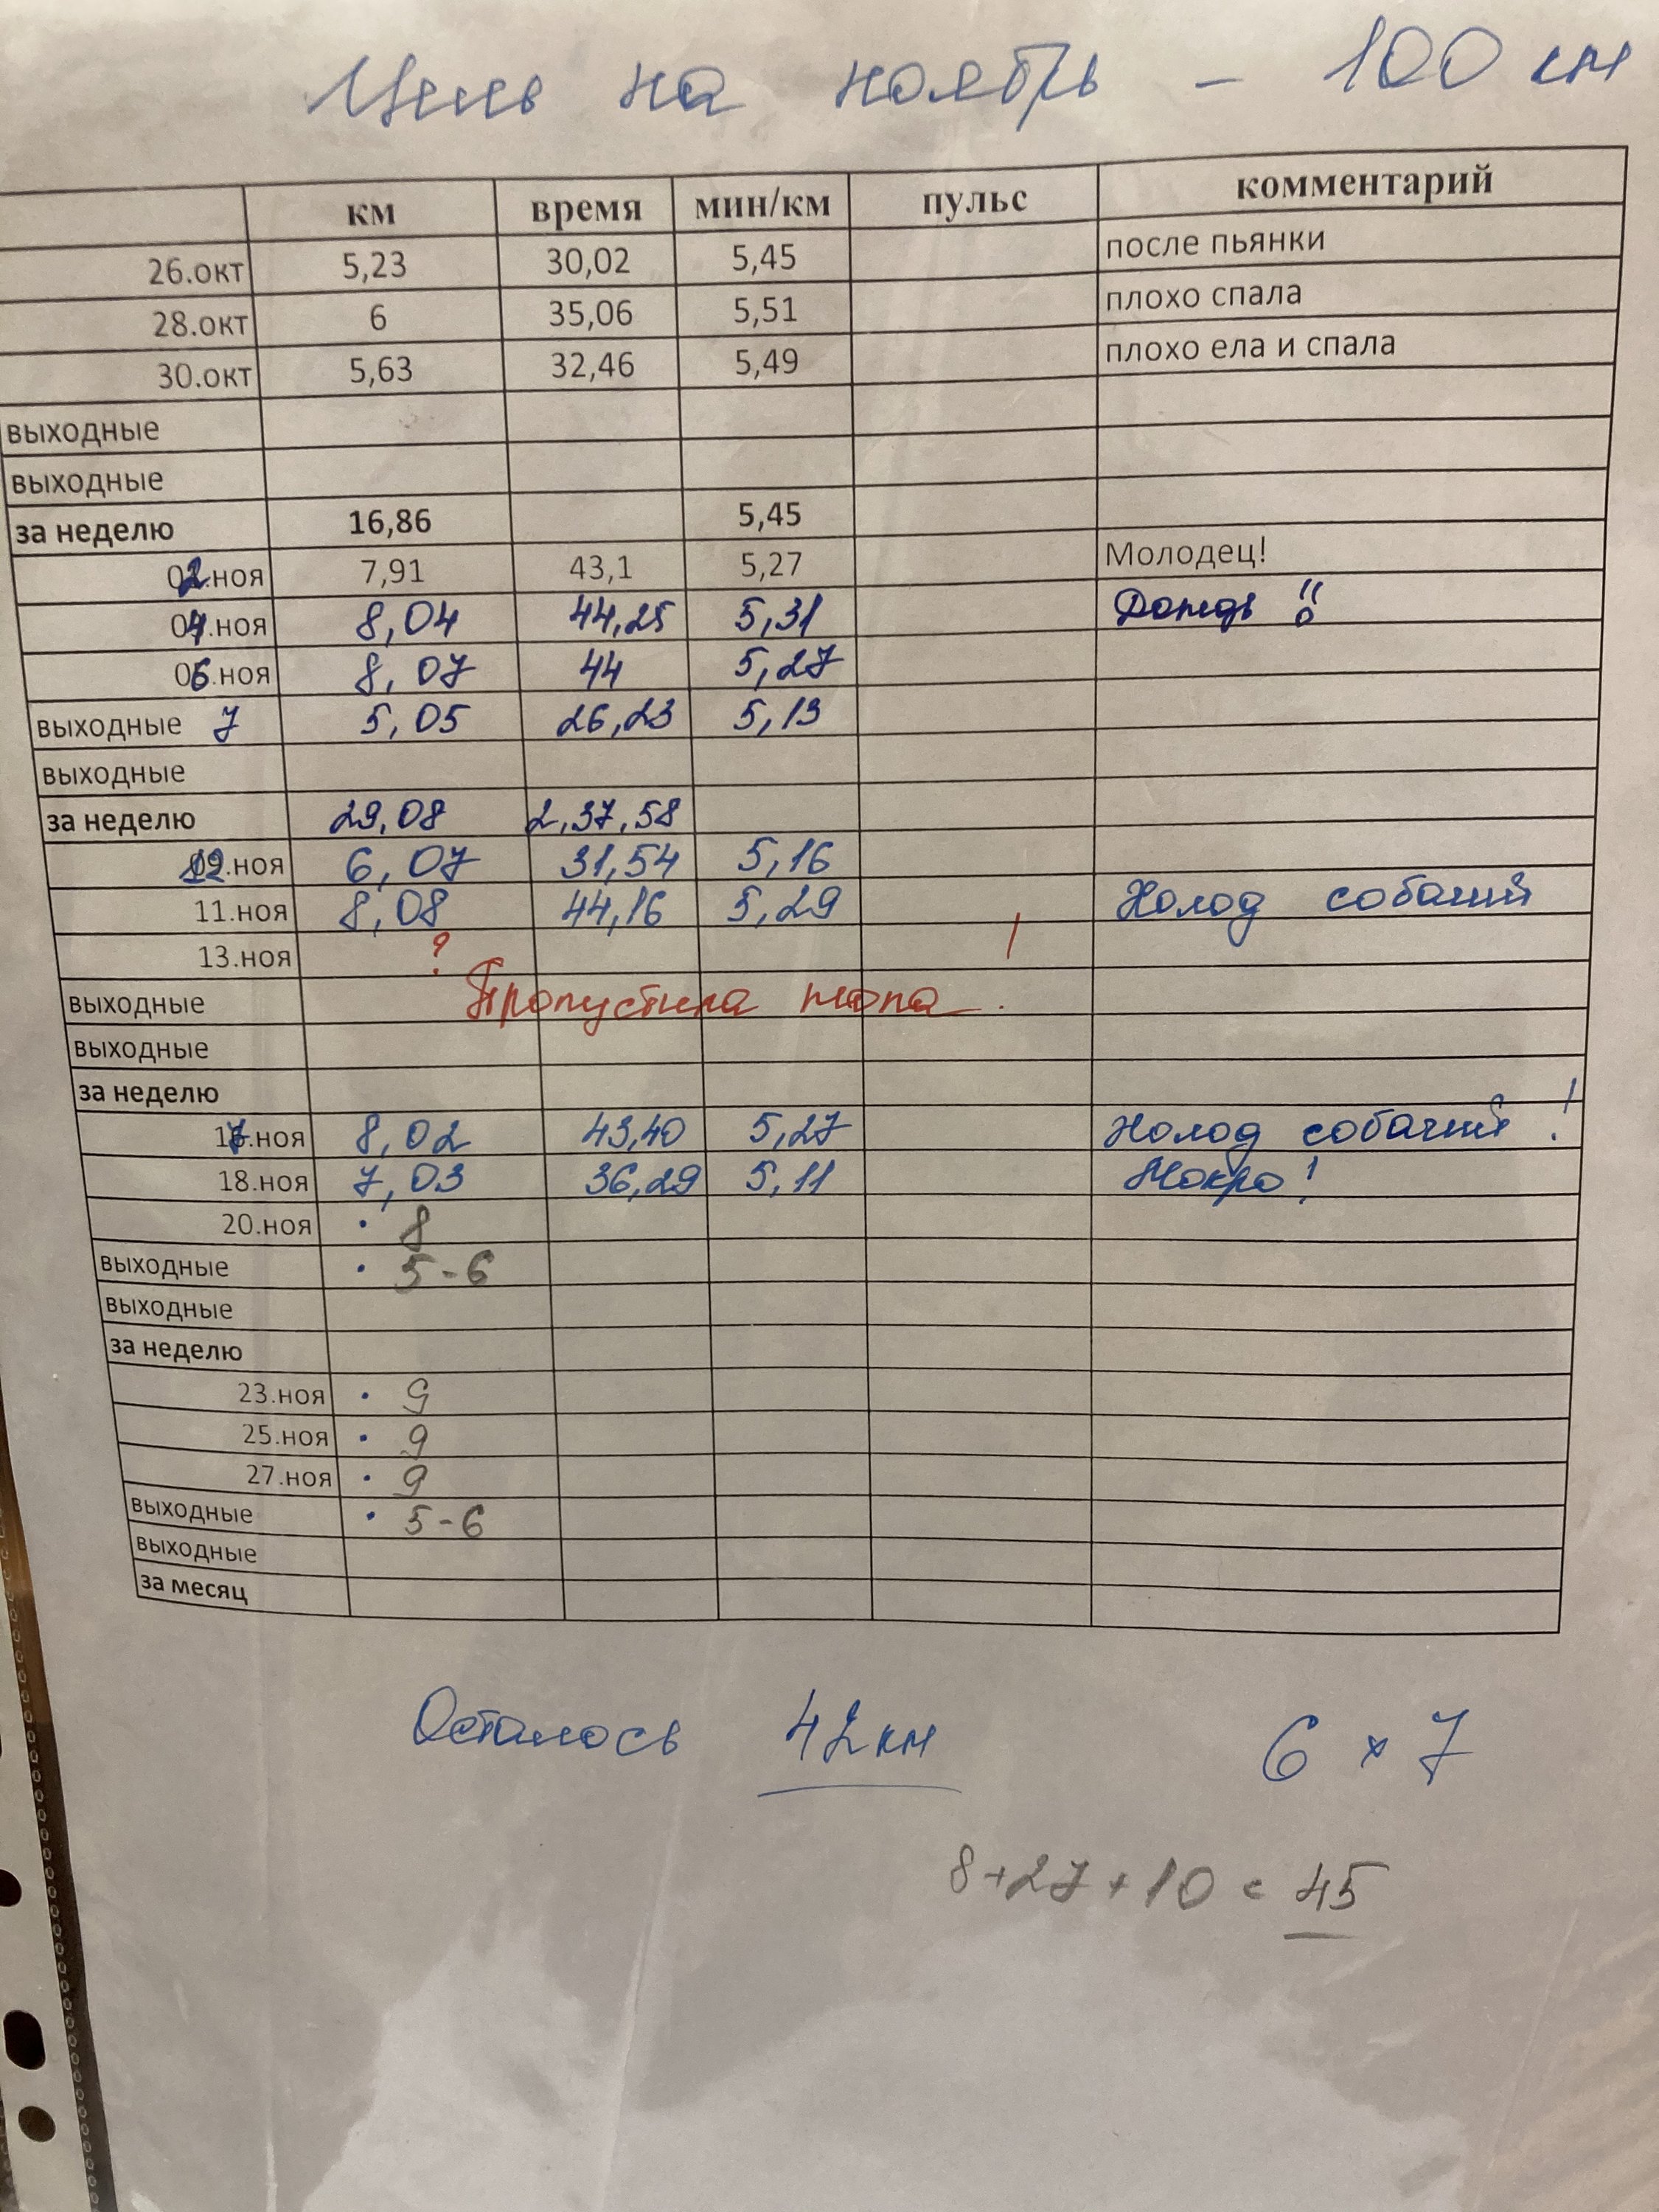 Цель на ноябрь - 100 км
км время мин/км пульс комментарий
26.окт 5,23 30,02 5,45 после пьянки
28.окт 6 35,06 5,51 плохо спала
30.окт 5,63 32,46 5,49 плохо ела и спала
выходные
выходные
за неделю 16,86 5,45
02.ноя 7,91 43,1 5,27 Молодец!
04.ноя 8,04 44,25 5,31 Дождь !!
06.ноя 8,07 44 5,27
выходные 7 5,05 26,23 5,13
выходные
за неделю 29,08 2,37,58
.ноя 6,07 31,54 5,16
11.ноя 8,08 44,16 5,29 Холод собачий
13.ноя ? !
выходные Пропустила жопа
выходные
за неделю
17.ноя 8,02 43,40 5,27 Холод собачий !
18.ноя 7,03 36,29 5,11 Мокро!
20.ноя • 8
выходные • 5-6
выходные
за неделю
23.ноя • 9
25.ноя • 9
27.ноя • 9
выходные • 5-6
выходные
за месяц
Осталось 42 км 6 × 7
8+27+10 = 45